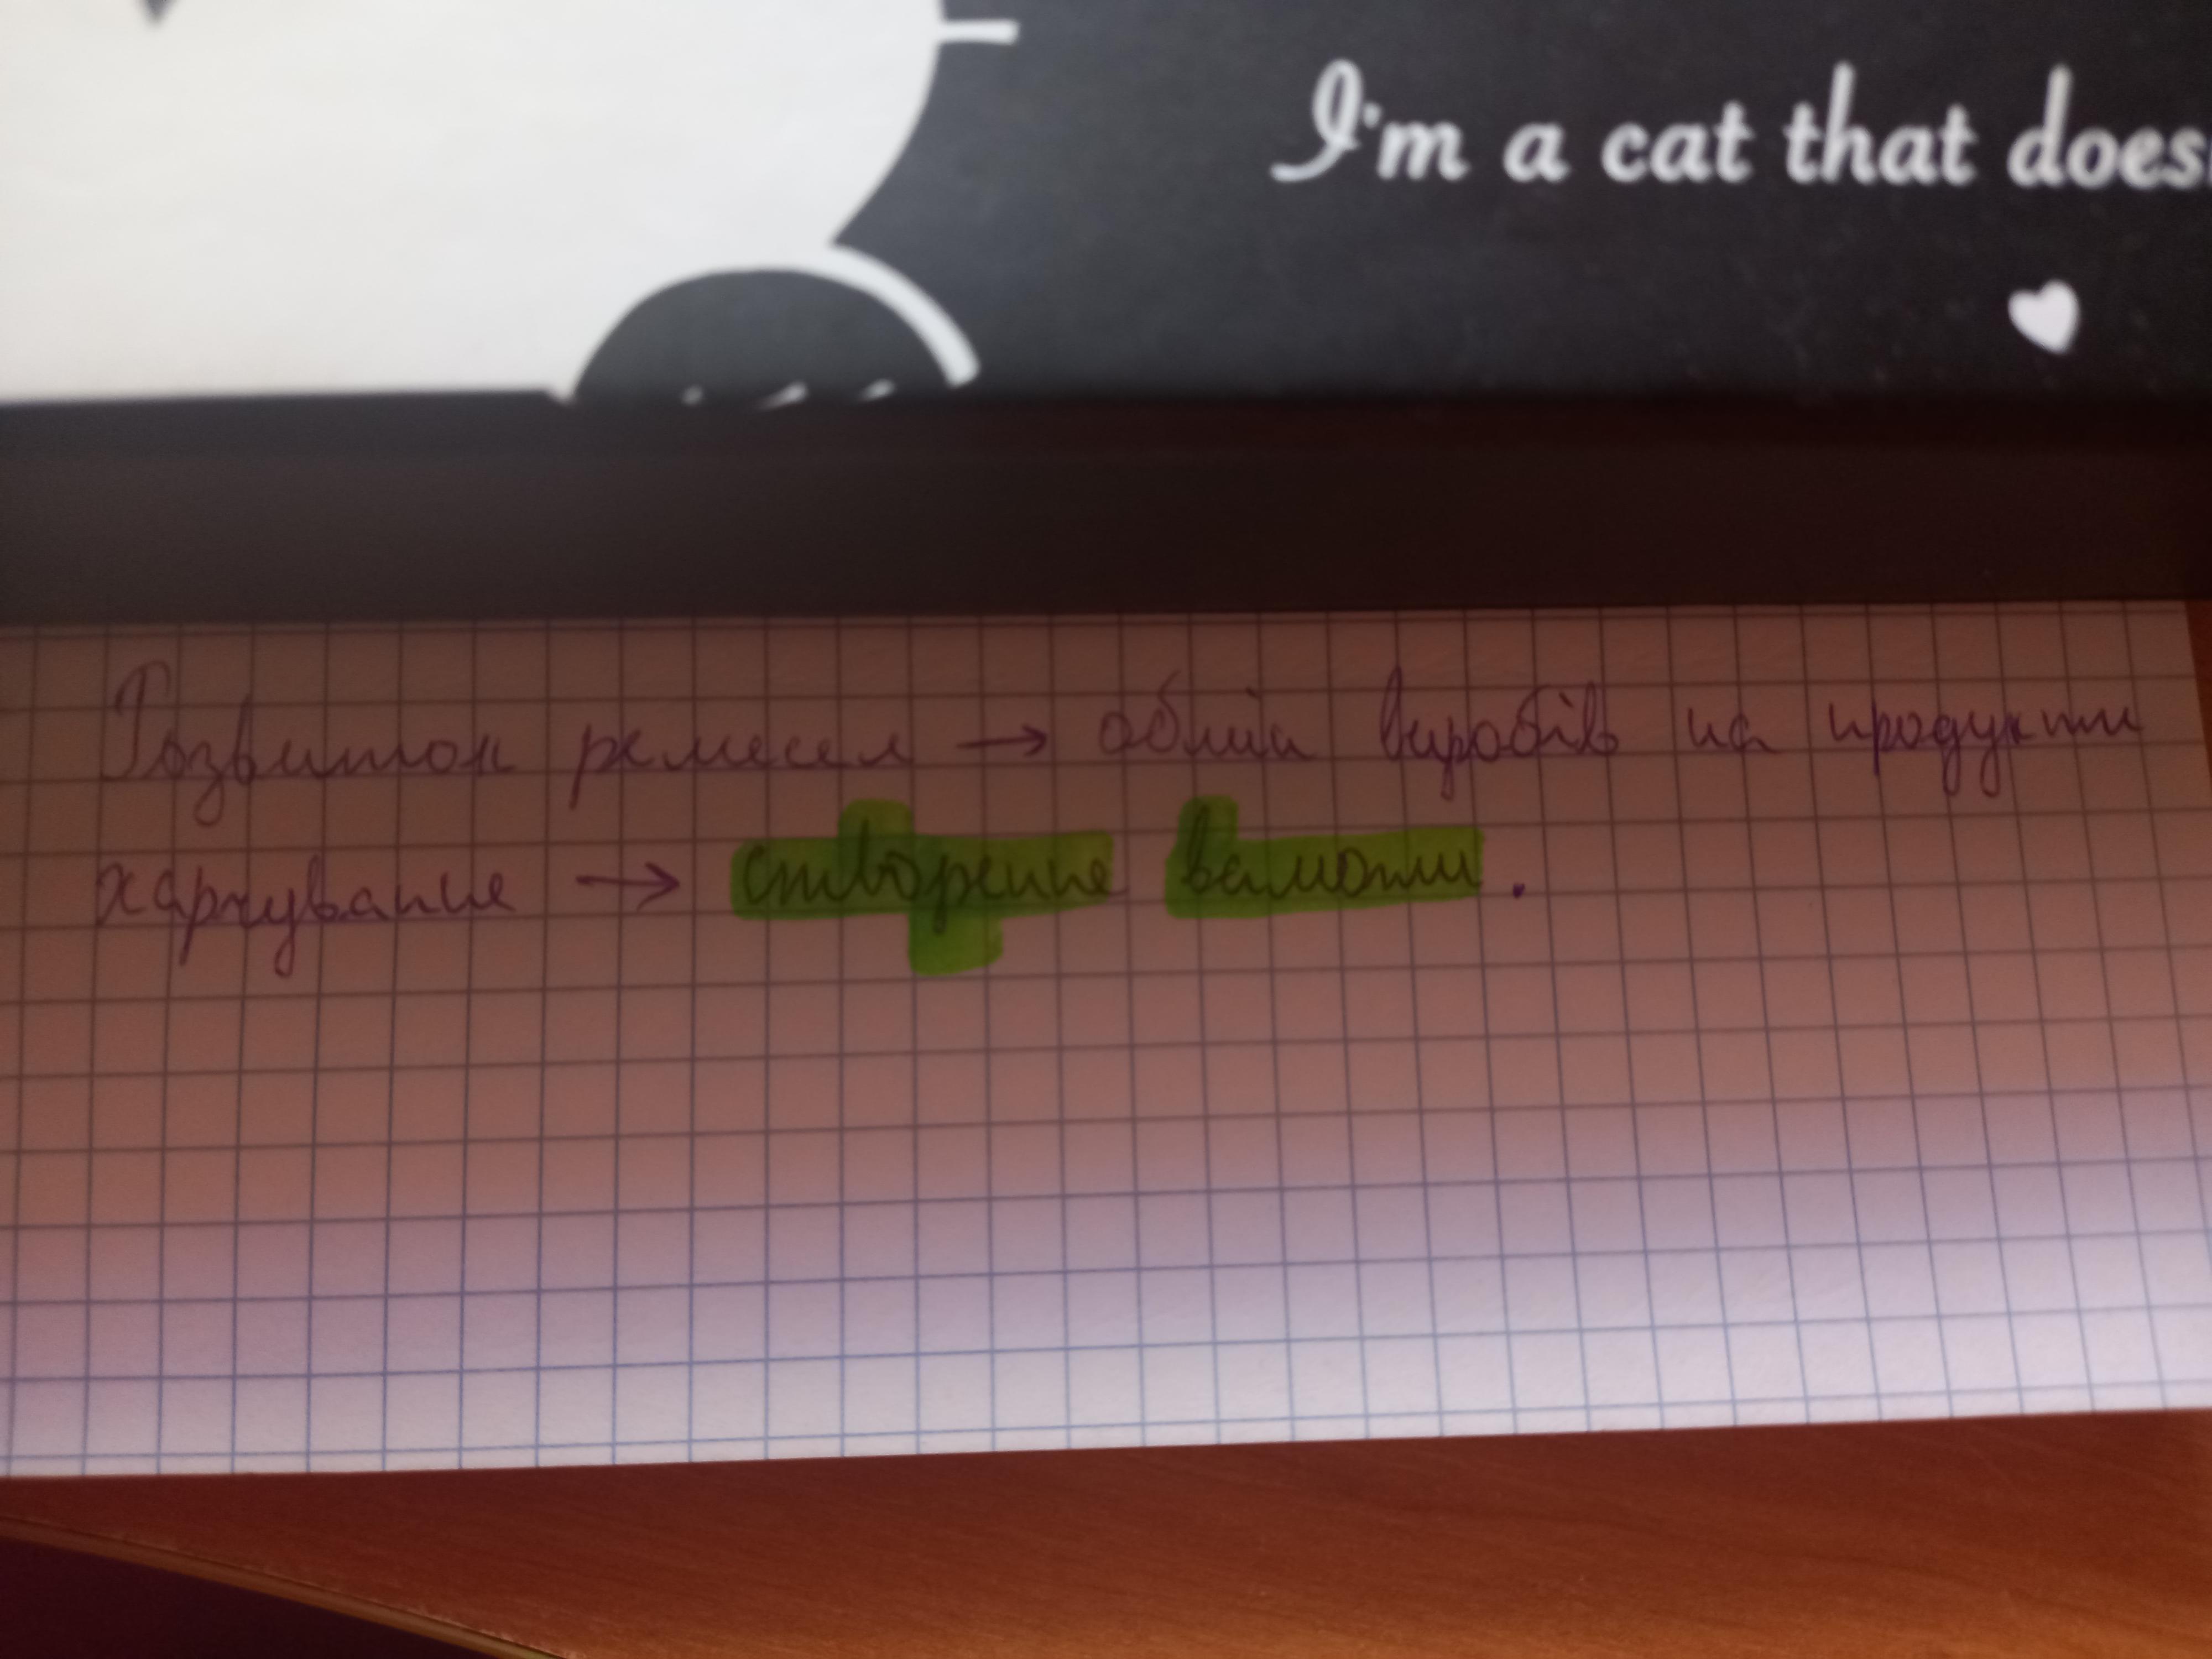 I'm a cat that does
Розвиток ремесел → обмін виробів на продукти
харчування → створення валюти.